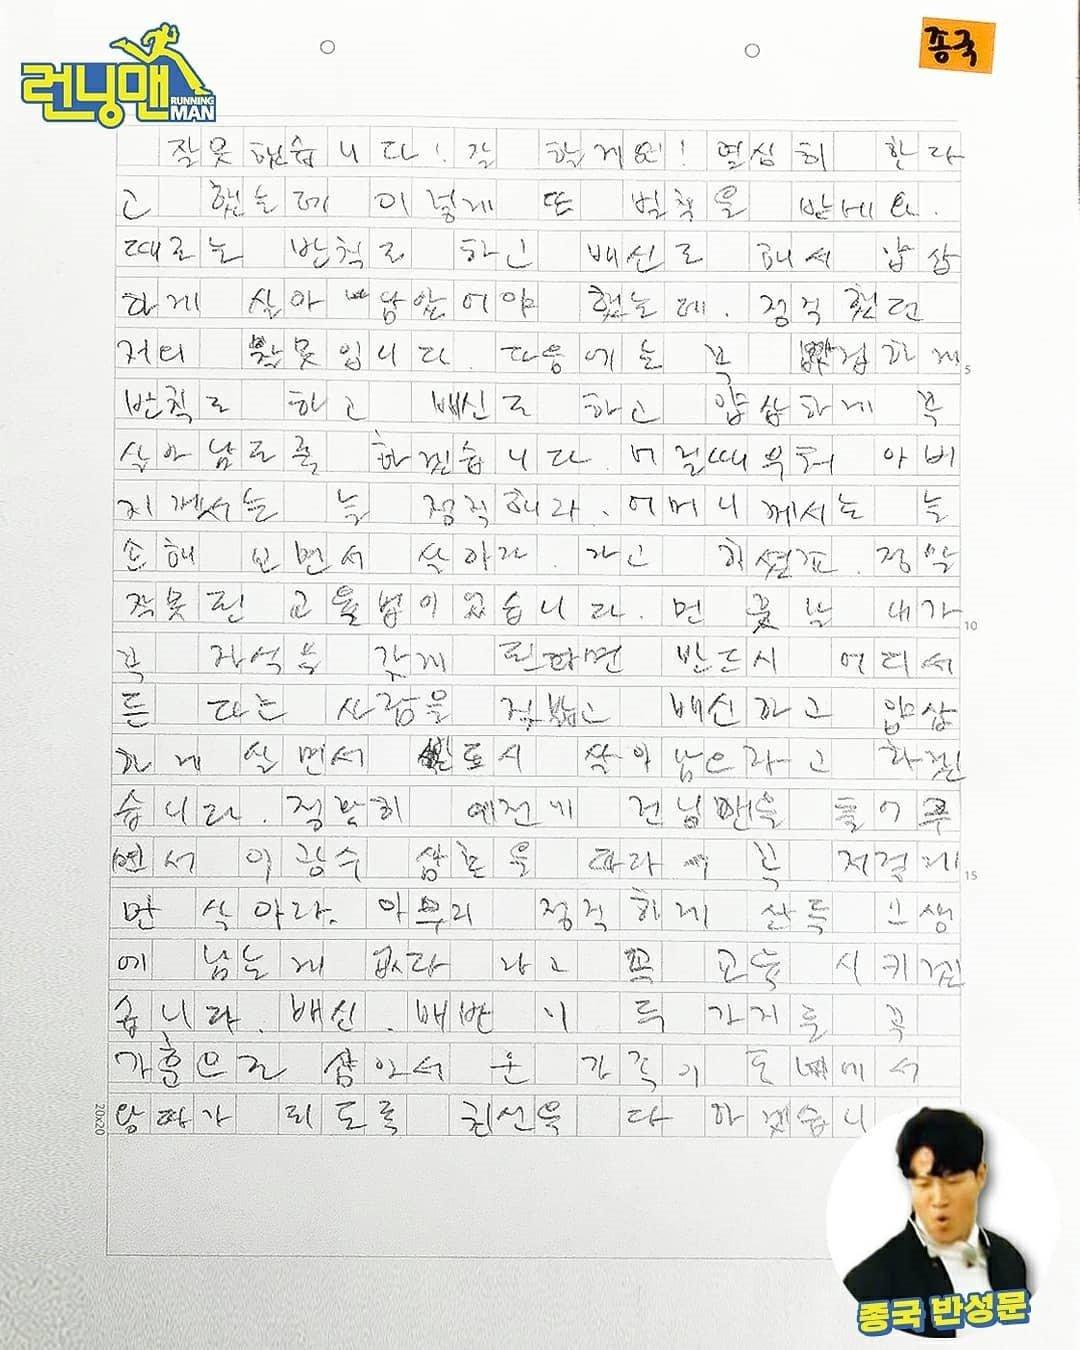 런닝맨
RUNNING
MAN
종국
잘못했습니다! 잘 할게요! 열심히 한다
고 했는데 이렇게 또 벌칙을 받네요.
때로는 반칙도 하고 배신도 해서 얍삽
하게 살아 남았어야 했는데. 정직했던
저의 잘못입니다. 다음에는 꼭 비겁하게
반칙도 하고 배신도 하고 얍삽하게 꼭
살아남도록 하겠습니다. 어릴때부터 아버
지께서는 늘 정직해라. 어머니께서는 늘
손해 보면서 살아라. 라고 하셨죠. 정말
잘못된 교육법이었습니다. 먼 훗날 내가
꼭 자식을 갖게 된다면 반드시 어디서
든 다른 사람을 짓밟고 배신하고 얍삽
하게 살면서 반드시 살아남으라고 하겠
습니다. 정확히 예전에 런닝맨을 틀어주
면서 이광수 삼촌을 따라 꼭 저렇게
만 살아라. 아무리 정직하게 산들 인생
에 남는게 없다 라고 꼭 교육 시키겠
습니다. 배신. 배반 이 두 가지를 꼭
가훈으로 삼아서 온 가족이 동네에서
왕따가 되도록 최선을 다 하겠습니
5
10
15
20x20
종국 반성문